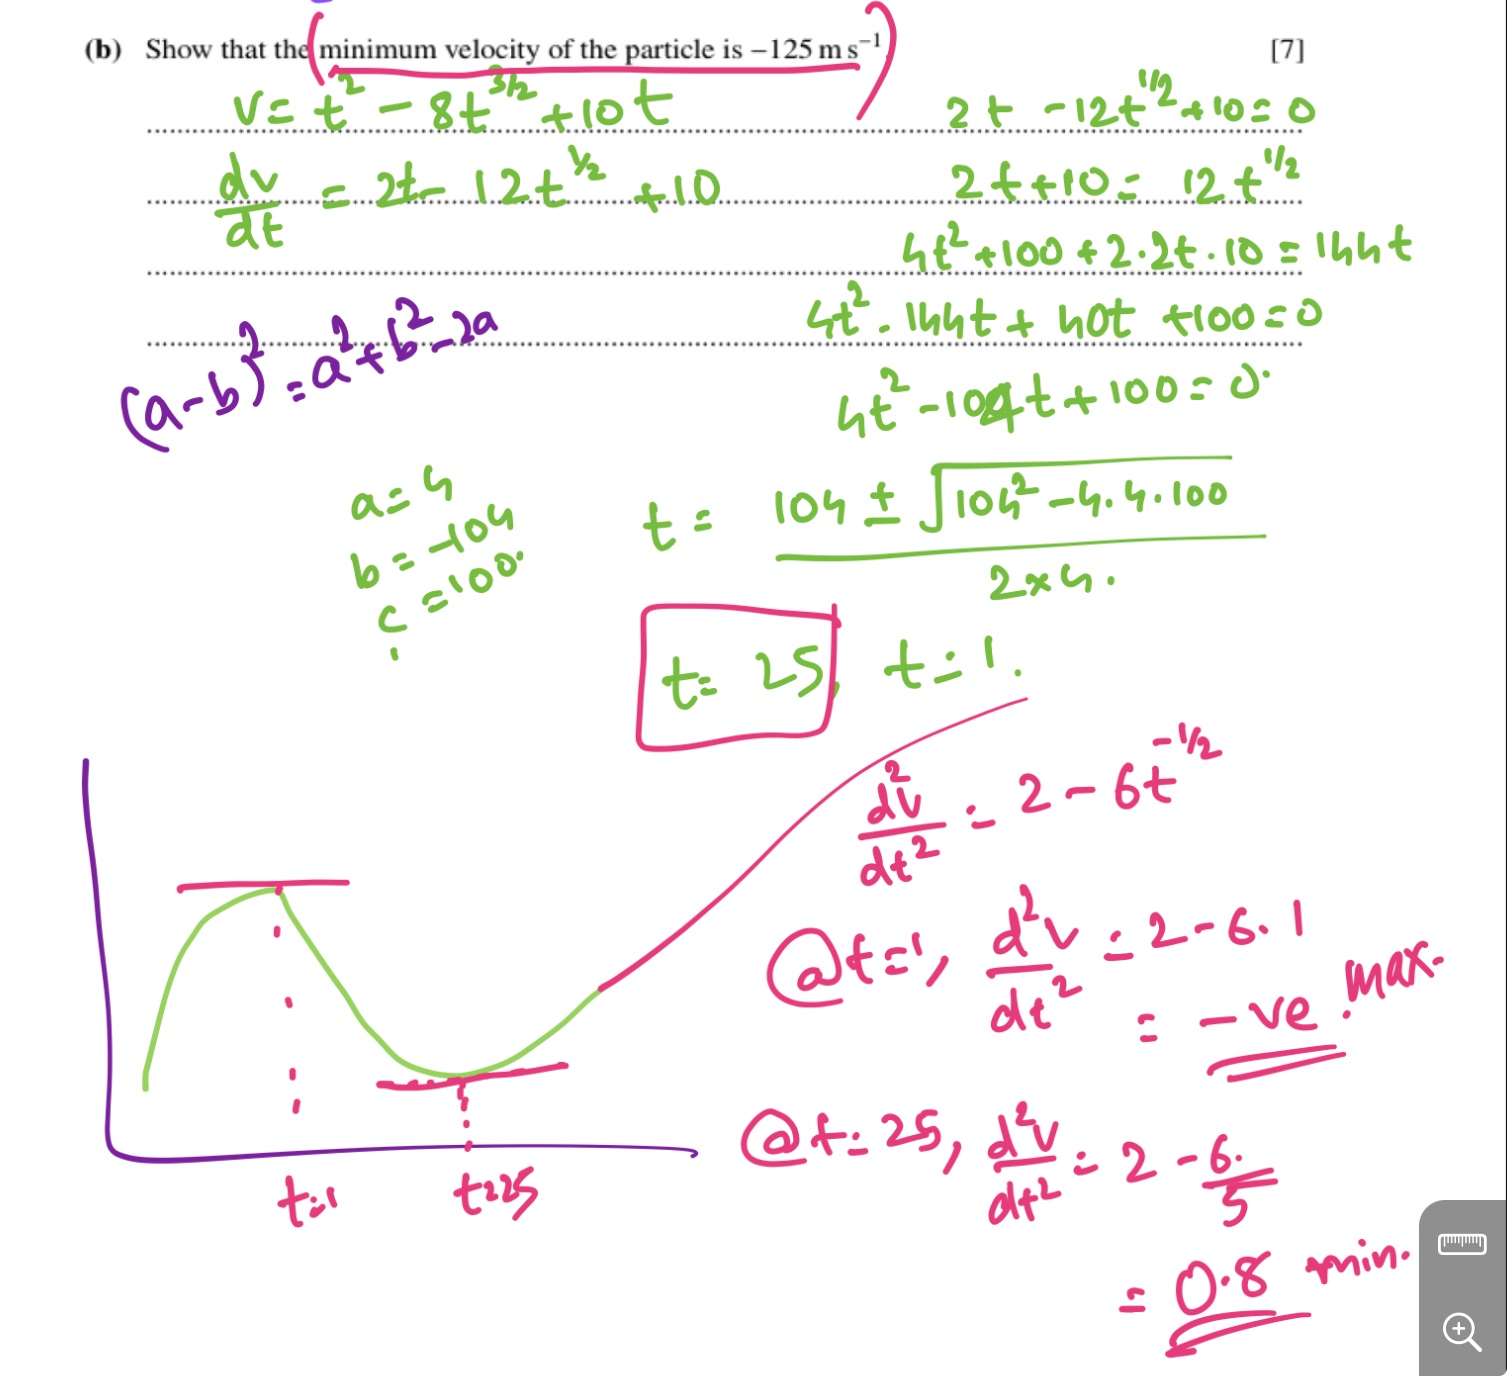 (b) Show that the minimum velocity of the particle is −125 m s⁻¹. [7]
v = t² − 8t^(3/2) + 10t
dv/dt = 2t − 12t^(1/2) + 10
(a−b)² = a² + b² − 2a
2t − 12t^(1/2) + 10 = 0
2t + 10 = 12t^(1/2)
4t² + 100 + 2·2t·10 = 144t
4t² − 144t + 40t + 100 = 0
4t² − 104t + 100 = 0.
a = 4
b = −104
c = 100.
t = (104 ± √(104² − 4.4.100)) / (2×4.)
t = 25, t = 1.
d²v/dt² = 2 − 6t^(−1/2)
@t=1, d²v/dt² = 2 − 6.1
= −ve. max.
@t=25, d²v/dt² = 2 − 6./5
= 0.8 min.
t=1 t=25